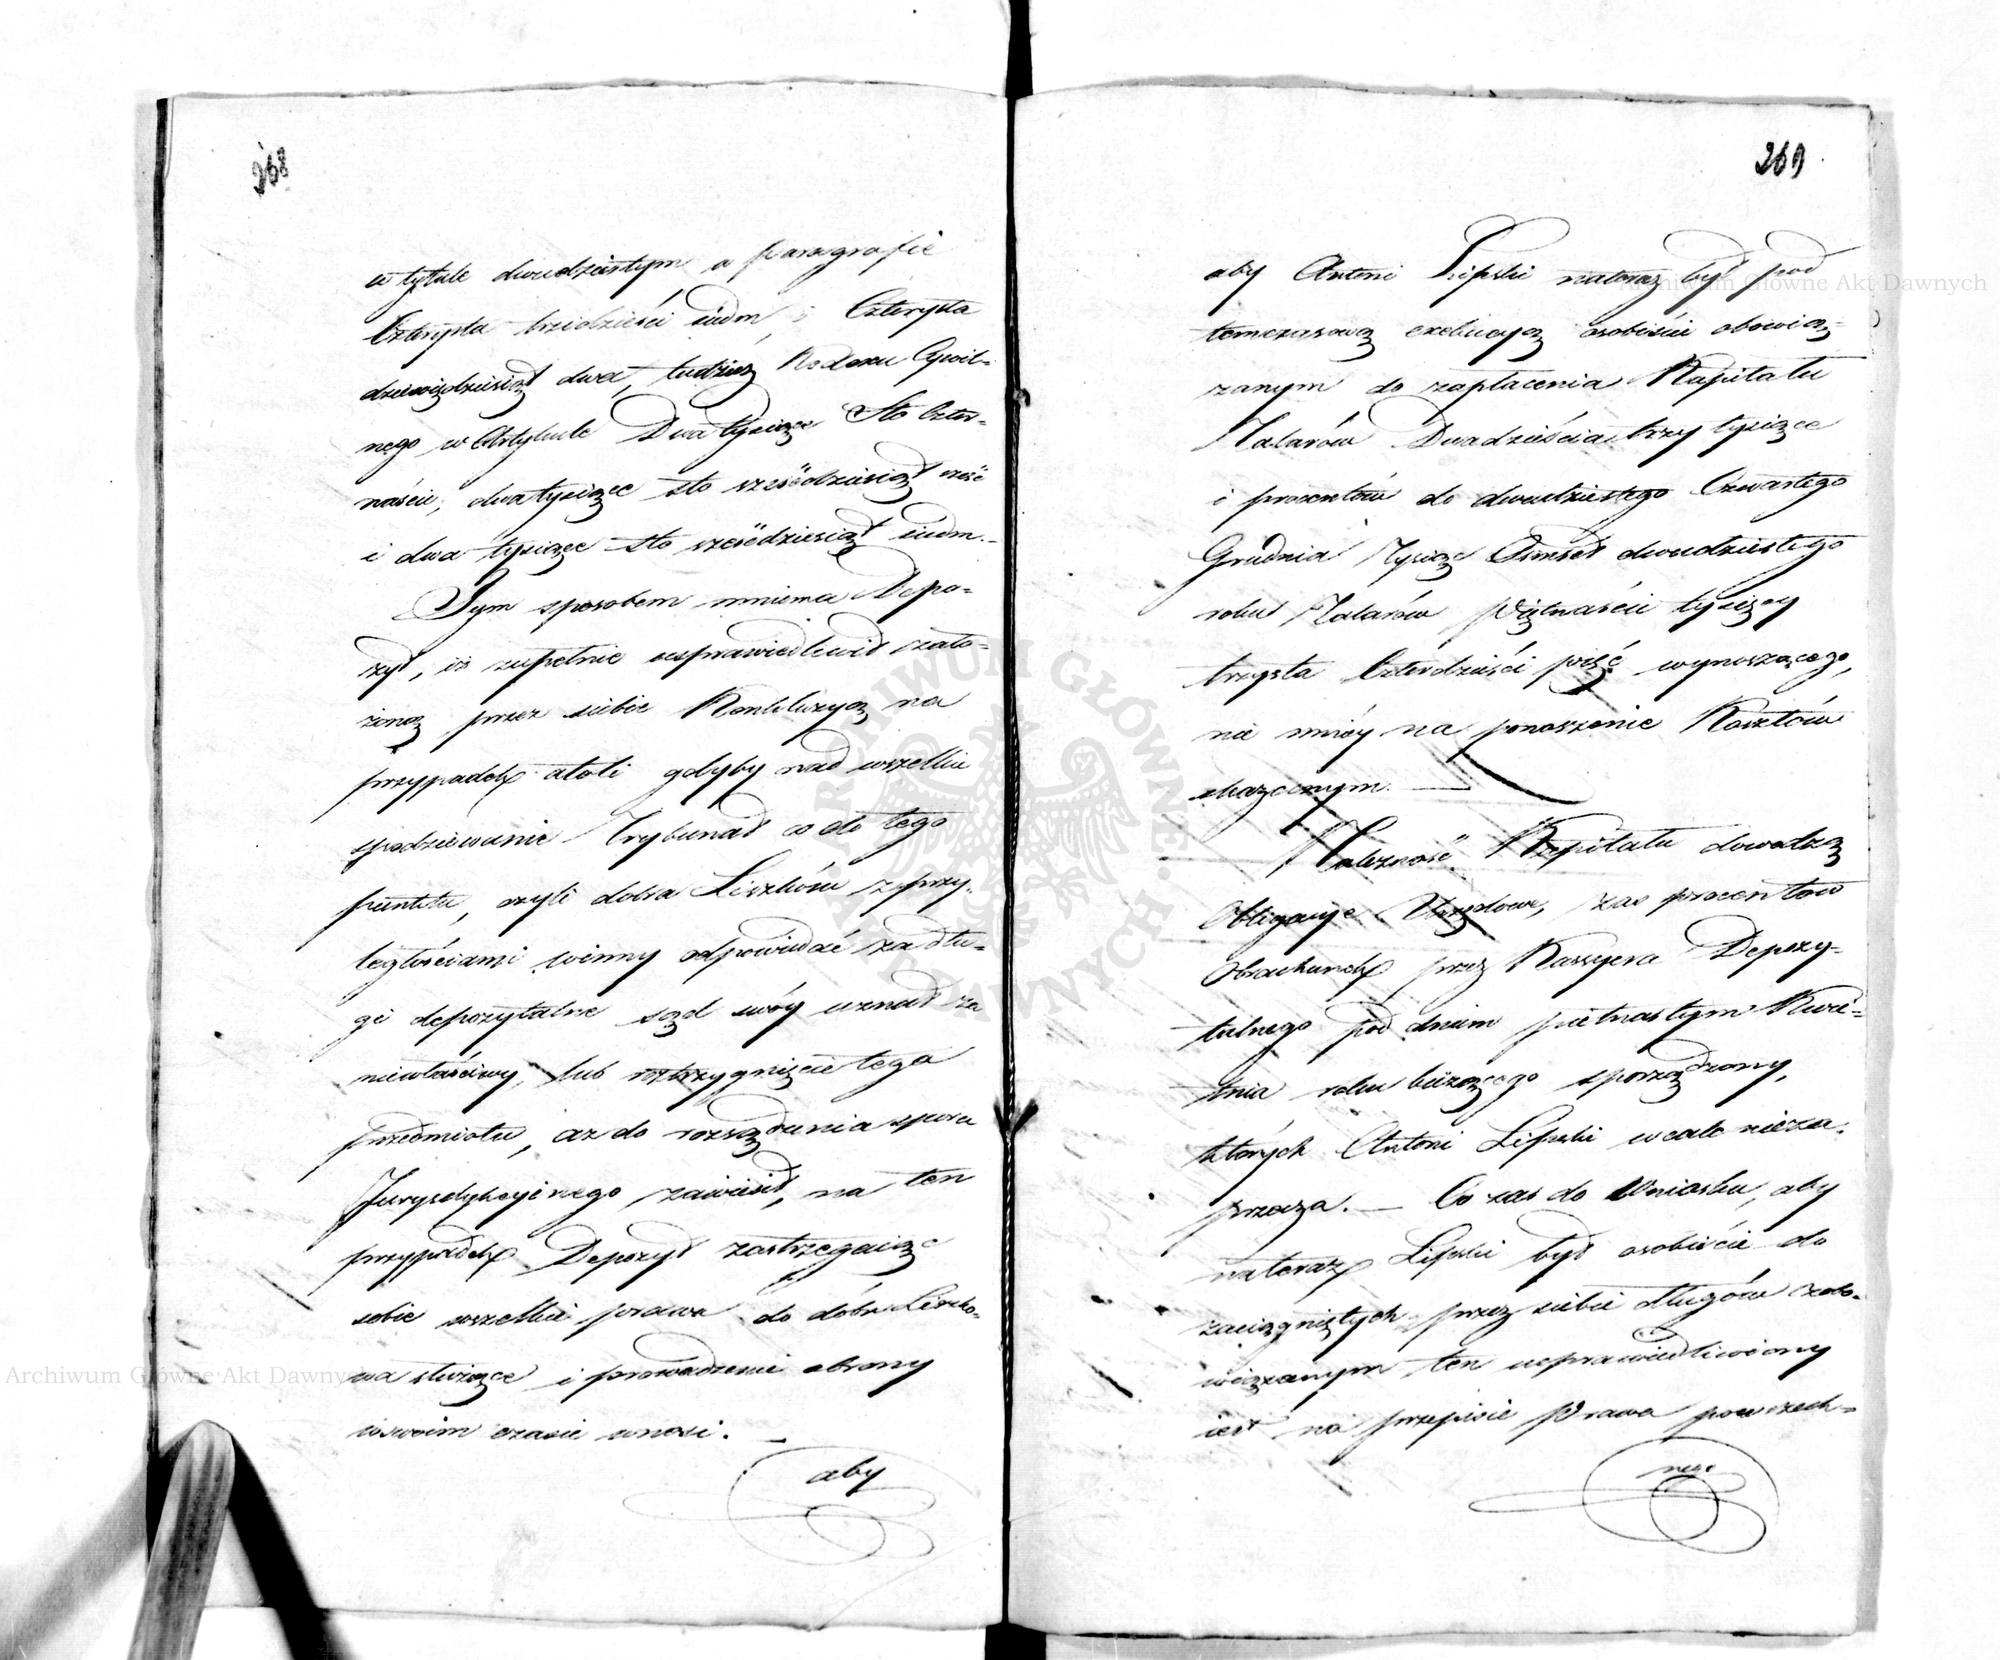 268
w tytule dwudziestym a paragrafie
Czterysta trzidzieści siedm i Czterysta
dziewiędziesiąt dwa, tudzież Kodexu Cywil-
nego w Artykule Dwa tysiące Sto Czter-
naście, dwa tysiące sto sześćdziesiąt sześć
i dwa tysiące sto sześćdziesiąt siedm.
Tym sposobem mniema Depo-
zyt, iż zupełnie usprawiedliwił zało-
żoną przez siebie Konkluzyą na
przypadek atoli gdyby nad wszelkie
spodziewanie Trybunał co do tego
punktu, czyli dobra Liszków z przy-
ległościami winny odpowiadać za dłu-
gi depozytalne sąd swóy uznał za
niewłaściwy, lub rozstrzygnięcie tego
przedmiotu, aż do rozsądzenia sporu
Jurysdykcyinego zawiesił, na ten
przypadek Depozyt zastrzegaiąc
sobie wszelkie prawa do dóbr Liszko-
wa służące i prowadzenie obrony
w swoim czasie wnosi. —
aby
269
aby Antoni Lipski nateraz był pod
temczasową exekucyą osobiście obowią-
zanym do zapłacenia Kapitału
Talarów Dwadzieścia trzy tysiące
i procentów do dwudziestego Czwartego
Grudnia Tysiąc Ośmset dwudziestego
roku Talarów Piętnaście tysięcy
trzysta Czterdzieści pięć wynoszącego,
nie mniéy na ponoszenie Kosztów
skazanym. —
Należność Kapitału dowodzą
Obligacye Urzędowe, zaś procentów
Obrachunek przez Kassyera Depozy-
talnego pod dniem piętnastym Kwie-
tnia roku bieżącego sporządzony,
których Antoni Lipski wcale nieza-
przecza. — Co zaś do Wniosku, aby
nateraz Lipski był osobiście do
zaciągniętych przez siebie długów zobo-
wiązanym ten usprawiedliwiony
iest na przepisie Prawa powszech-
nego